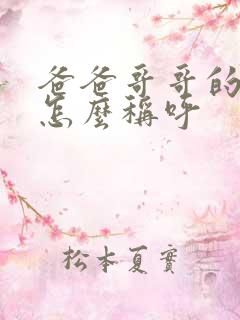 爸爸哥哥的
怎麼稱呼
松本夏實